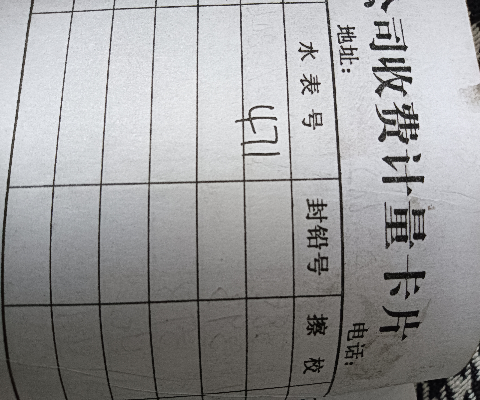 公司收费计量卡片
地址： 电话：
水表号 封铅号 擦校
471